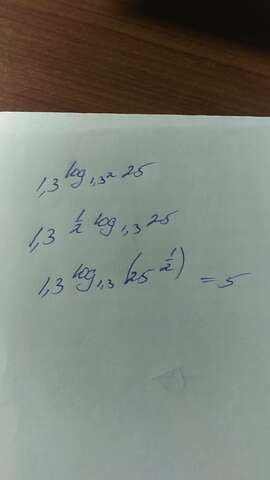 1,3^log_{1,3²} 25
1,3^{1/2} log_{1,3} 25
1,3^log_{1,3} (25^{1/2}) = 5